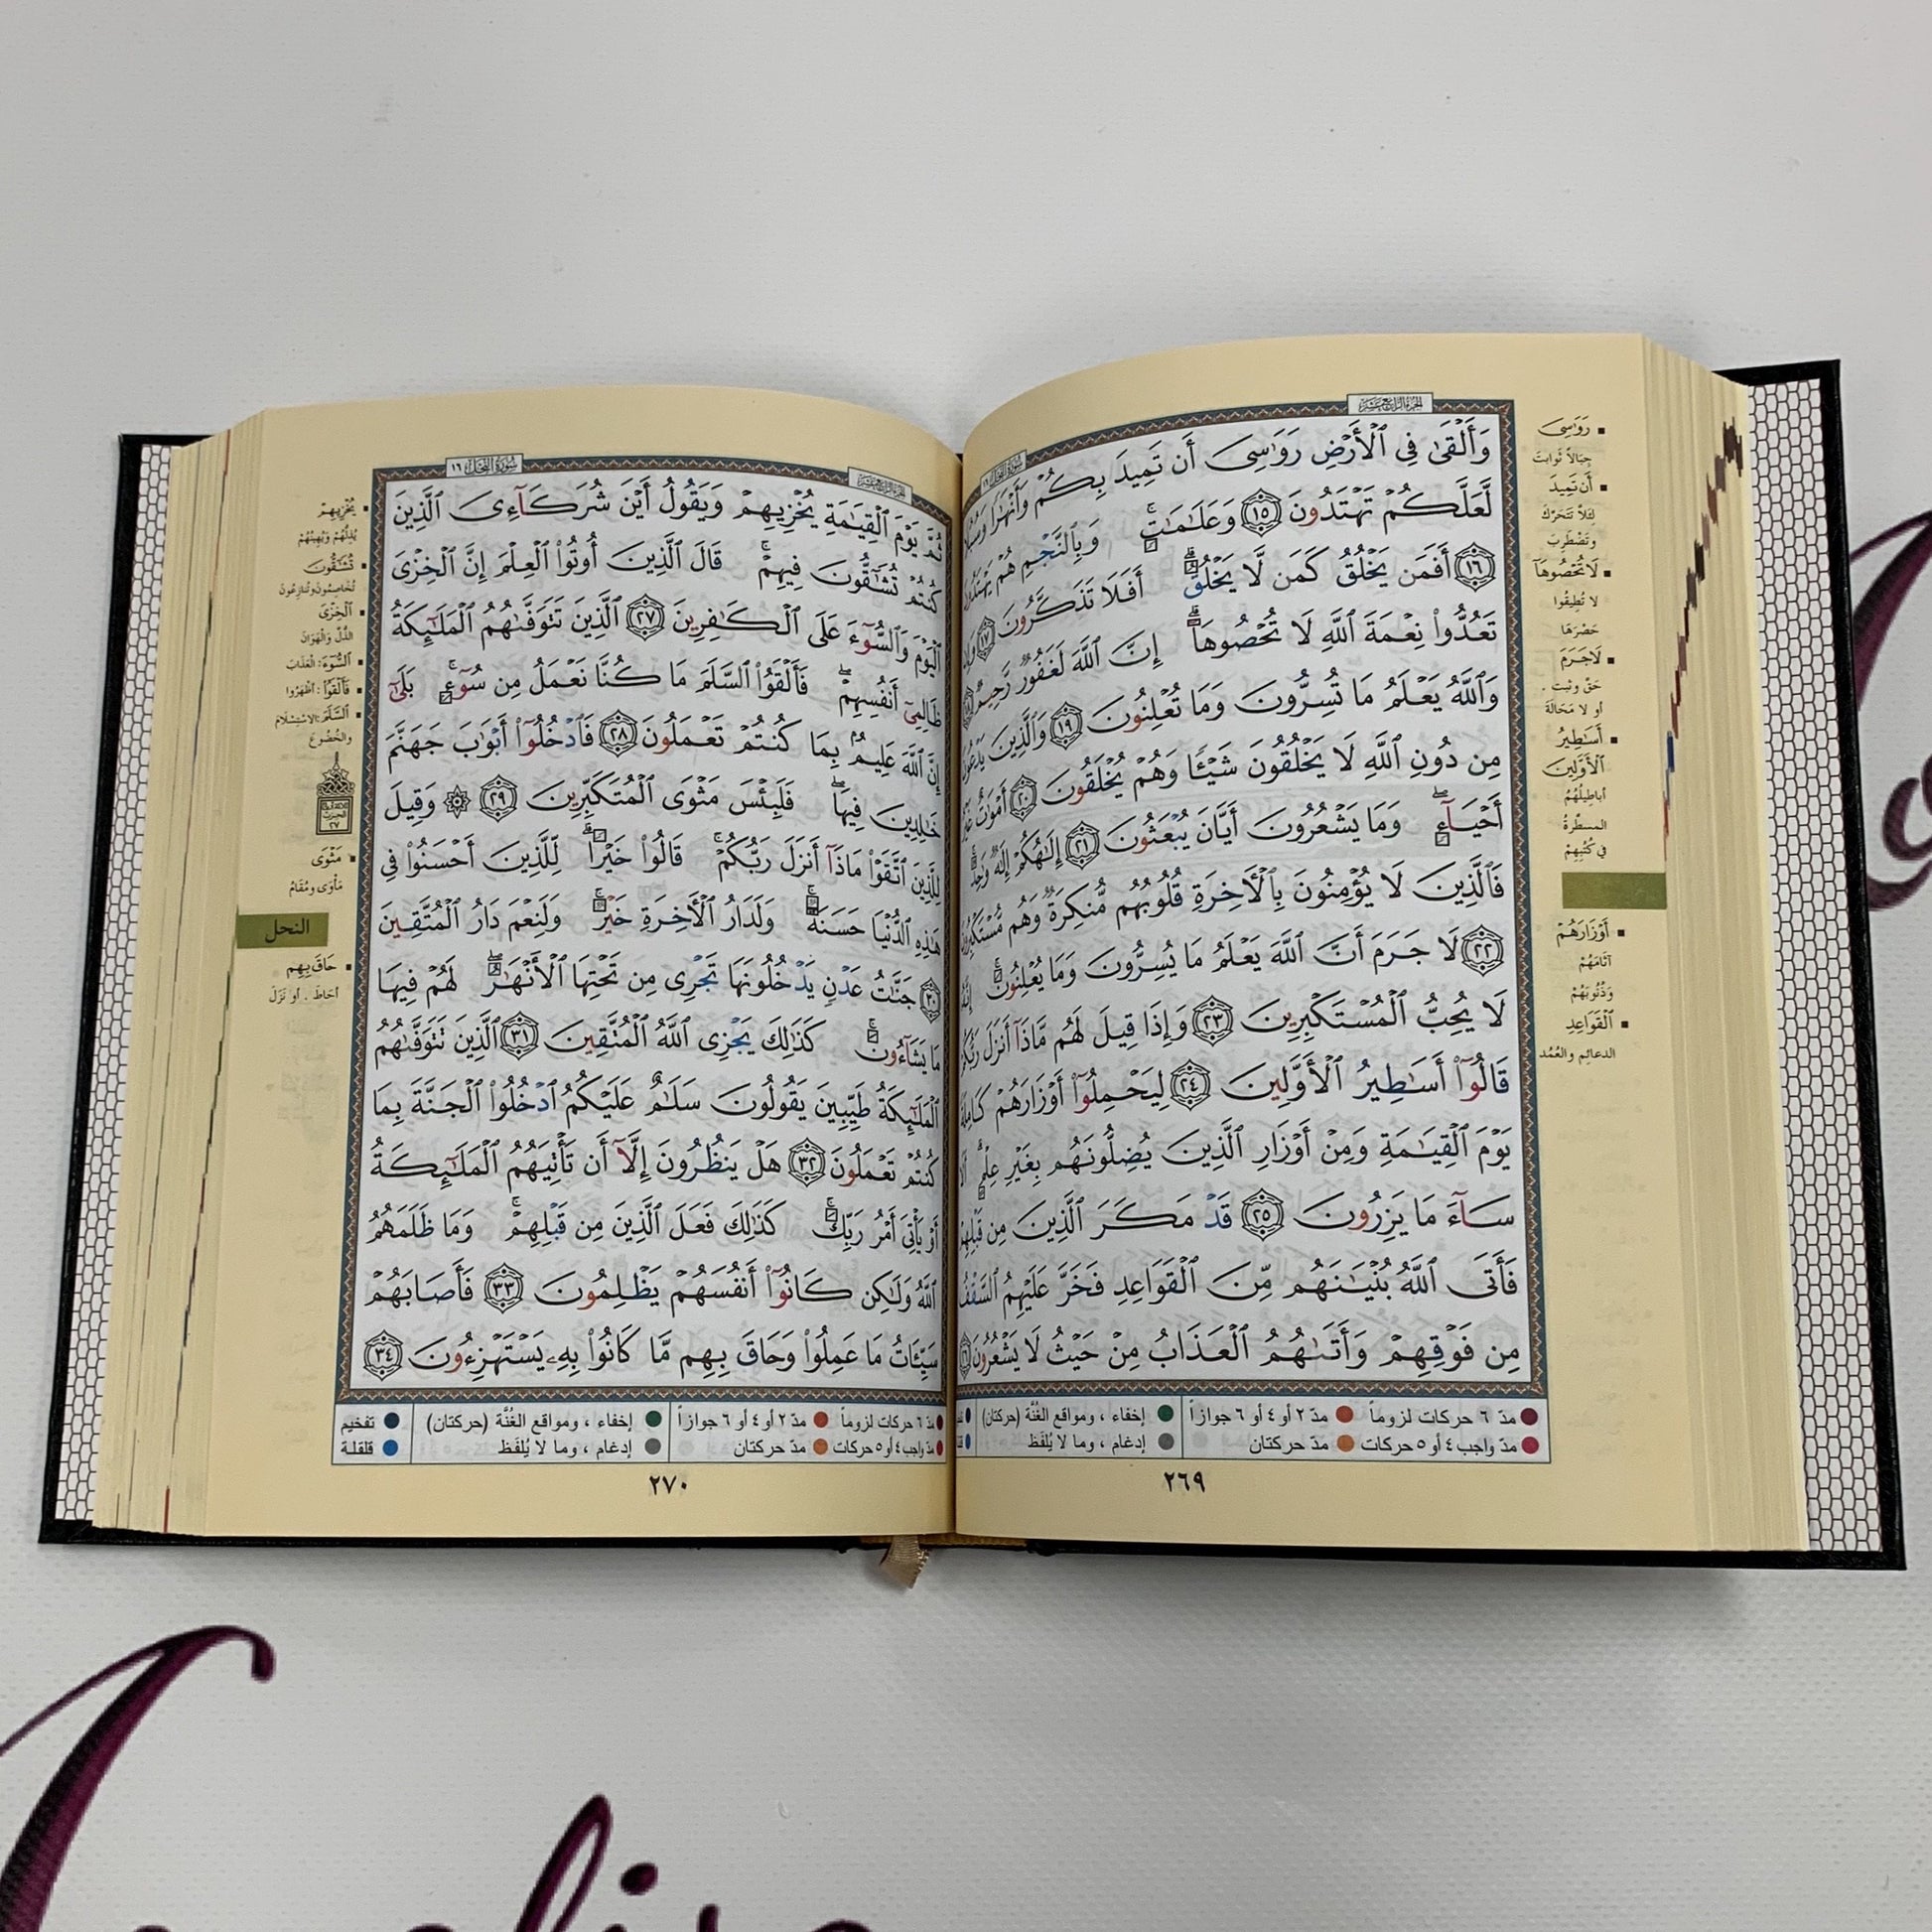 الجزء الرابع عشر
وَأَلْقَىٰ فِى ٱلْأَرْضِ رَوَٰسِىَ أَن تَمِيدَ بِكُمْ وَأَنْهَٰرًا وَسُبُلًا
لَّعَلَّكُمْ تَهْتَدُونَ ١٥ وَعَلَٰمَٰتٍ وَبِٱلنَّجْمِ هُمْ يَهْتَدُونَ
١٦ أَفَمَن يَخْلُقُ كَمَن لَّا يَخْلُقُ أَفَلَا تَذَكَّرُونَ ١٧ وَإِن
تَعُدُّوا۟ نِعْمَةَ ٱللَّهِ لَا تُحْصُوهَآ إِنَّ ٱللَّهَ لَغَفُورٌ رَّحِيمٌ
وَٱللَّهُ يَعْلَمُ مَا تُسِرُّونَ وَمَا تُعْلِنُونَ ١٩ وَٱلَّذِينَ يَدْعُونَ
مِن دُونِ ٱللَّهِ لَا يَخْلُقُونَ شَيْـًٔا وَهُمْ يُخْلَقُونَ ٢٠ أَمْوَٰتٌ غَيْرُ
أَحْيَآءٍ وَمَا يَشْعُرُونَ أَيَّانَ يُبْعَثُونَ ٢١ إِلَٰهُكُمْ إِلَٰهٌ وَٰحِدٌ
فَٱلَّذِينَ لَا يُؤْمِنُونَ بِٱلْءَاخِرَةِ قُلُوبُهُم مُّنكِرَةٌ وَهُم مُّسْتَكْبِرُونَ
٢٢ لَا جَرَمَ أَنَّ ٱللَّهَ يَعْلَمُ مَا يُسِرُّونَ وَمَا يُعْلِنُونَ إِنَّهُۥ
لَا يُحِبُّ ٱلْمُسْتَكْبِرِينَ ٢٣ وَإِذَا قِيلَ لَهُم مَّاذَآ أَنزَلَ رَبُّكُمْ
قَالُوٓا۟ أَسَٰطِيرُ ٱلْأَوَّلِينَ ٢٤ لِيَحْمِلُوٓا۟ أَوْزَارَهُمْ كَامِلَةً
يَوْمَ ٱلْقِيَٰمَةِ وَمِنْ أَوْزَارِ ٱلَّذِينَ يُضِلُّونَهُم بِغَيْرِ عِلْمٍ أَلَا
سَآءَ مَا يَزِرُونَ ٢٥ قَدْ مَكَرَ ٱلَّذِينَ مِن قَبْلِهِمْ
فَأَتَى ٱللَّهُ بُنْيَٰنَهُم مِّنَ ٱلْقَوَاعِدِ فَخَرَّ عَلَيْهِمُ ٱلسَّقْفُ
مِن فَوْقِهِمْ وَأَتَىٰهُمُ ٱلْعَذَابُ مِنْ حَيْثُ لَا يَشْعُرُونَ
■ رَوَٰسِىَ
جِبَالاً ثَوابتَ
■ أَن تَمِيدَ
لِئَلاَّ تَتَحَرَّكَ
وتَضْطَرِبَ
■ لَا تُحْصُوهَآ
لا تُطِيقُوا
حَصْرَهَا
■ لَاجَرَمَ
حَقَّ وثبت .
أو لا مَحَالَةَ
■ أَسَٰطِيرُ
ٱلْأَوَّلِينَ
أباطِيلُهُمُ
المسطَّرةُ
في كُتُبِهِمْ
■ أَوْزَارَهُمْ
آثَامَهُمْ
وَذُنُوبَهُمْ
■ ٱلْقَوَاعِدِ
الدعائِم والعُمُد
مدّ ٦ حركات لزوماً مدّ ٢ أو ٤ أو ٦ جوازاً إخفاء ، ومواقع الغُنَّة (حركتان)
مدّ واجب ٤ أو ٥ حركات مدّ حركتان إدغام ، وما لا يُلفَظ
٢٦٩
سورة النحل ١٦
ثُمَّ يَوْمَ ٱلْقِيَٰمَةِ يُخْزِيهِمْ وَيَقُولُ أَيْنَ شُرَكَآءِىَ ٱلَّذِينَ
كُنتُمْ تُشَٰٓقُّونَ فِيهِمْ قَالَ ٱلَّذِينَ أُوتُوا۟ ٱلْعِلْمَ إِنَّ ٱلْخِزْىَ
ٱلْيَوْمَ وَٱلسُّوٓءَ عَلَى ٱلْكَٰفِرِينَ ٢٧ ٱلَّذِينَ تَتَوَفَّىٰهُمُ ٱلْمَلَٰٓئِكَةُ
ظَالِمِىٓ أَنفُسِهِمْ فَأَلْقَوُا۟ ٱلسَّلَمَ مَا كُنَّا نَعْمَلُ مِن سُوٓءٍ بَلَىٰٓ
إِنَّ ٱللَّهَ عَلِيمٌۢ بِمَا كُنتُمْ تَعْمَلُونَ ٢٨ فَٱدْخُلُوٓا۟ أَبْوَٰبَ جَهَنَّمَ
خَٰلِدِينَ فِيهَا فَلَبِئْسَ مَثْوَى ٱلْمُتَكَبِّرِينَ ٢٩ ۞ وَقِيلَ
لِلَّذِينَ ٱتَّقَوْا۟ مَاذَآ أَنزَلَ رَبُّكُمْ قَالُوا۟ خَيْرًا لِّلَّذِينَ أَحْسَنُوا۟ فِى
هَٰذِهِ ٱلدُّنْيَا حَسَنَةٌ وَلَدَارُ ٱلْءَاخِرَةِ خَيْرٌ وَلَنِعْمَ دَارُ ٱلْمُتَّقِينَ
٣٠ جَنَّٰتُ عَدْنٍ يَدْخُلُونَهَا تَجْرِى مِن تَحْتِهَا ٱلْأَنْهَٰرُ لَهُمْ فِيهَا
مَا يَشَآءُونَ كَذَٰلِكَ يَجْزِى ٱللَّهُ ٱلْمُتَّقِينَ ٣١ ٱلَّذِينَ تَتَوَفَّىٰهُمُ
ٱلْمَلَٰٓئِكَةُ طَيِّبِينَ يَقُولُونَ سَلَٰمٌ عَلَيْكُمُ ٱدْخُلُوا۟ ٱلْجَنَّةَ بِمَا
كُنتُمْ تَعْمَلُونَ ٣٢ هَلْ يَنظُرُونَ إِلَّآ أَن تَأْتِيَهُمُ ٱلْمَلَٰٓئِكَةُ
أَوْ يَأْتِىَ أَمْرُ رَبِّكَ كَذَٰلِكَ فَعَلَ ٱلَّذِينَ مِن قَبْلِهِمْ وَمَا ظَلَمَهُمُ
ٱللَّهُ وَلَٰكِن كَانُوٓا۟ أَنفُسَهُمْ يَظْلِمُونَ ٣٣ فَأَصَابَهُمْ
سَيِّـَٔاتُ مَا عَمِلُوا۟ وَحَاقَ بِهِم مَّا كَانُوا۟ بِهِۦ يَسْتَهْزِءُونَ ٣٤
■ يُخْزِيهِمْ
يُذِلُّهُمْ وَيُهِينُهُمْ
■ تُشَٰٓقُّونَ
تُخَاصِمُونَ وتُنَازِعُونَ
■ ٱلْخِزْىَ
الذُّلَّ وَالْهَوَانَ
■ ٱلسُّوٓءَ: الْعَذَابَ
■ فَأَلْقَوُا۟ : أظْهَرُوا
■ ٱلسَّلَمَ :الاسْتِسْلَامَ
والخُضُوعَ
الحزب
٢٧
■ مَثْوَى
مَأْوَى ومُقَامُ
النحل
■ حَاقَ بِهِم
أحَاطَ . أو نَزَلَ
مدّ ٦ حركات لزوماً مدّ ٢ أو ٤ أو ٦ جوازاً إخفاء ، ومواقع الغُنَّة (حركتان) تفخيم
مدّ واجب ٤ أو ٥ حركات مدّ حركتان إدغام ، وما لا يُلفَظ قلقلة
٢٧٠